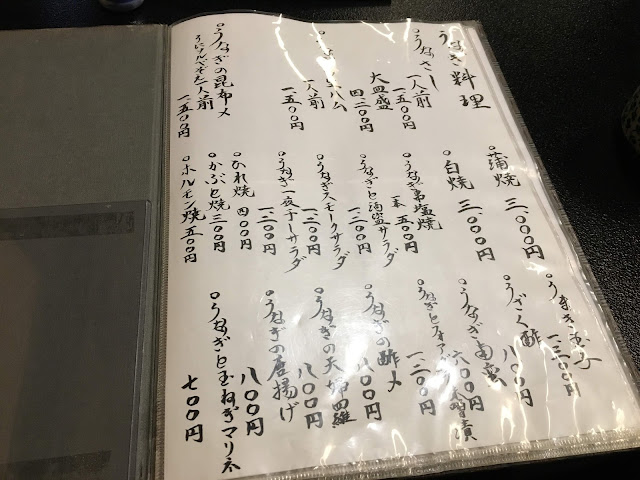 うなぎ料理
○うなさし
一人前
一、五〇〇円
大皿盛
四、二〇〇円
生ハム
一人前
一、五〇〇円
○うなぎの昆布〆
一人前
一、五〇〇円
○蒲焼 三、〇〇〇円
○白焼 三、〇〇〇円
○うなぎ串塩焼
一本 五〇〇円
○うなぎと海盗サラダ
一、二〇〇円
○うなぎスモークサラダ
一、二〇〇円
○うなぎ一夜干しサラダ
一、二〇〇円
○ひれ焼 四〇〇円
○かぶと焼 三〇〇円
○ホルモン焼 五〇〇円
○うまき玉子
一、三〇〇円
○うざく酢
八〇〇円
○うなぎ南蛮漬
六〇〇円
○うなぎとフォア
一、二〇〇円
○うなぎの酢〆
八〇〇円
○うなぎの天婦羅
八〇〇円
○うなぎの唐揚げ
八〇〇円
○うなぎと玉ねぎマリネ
七〇〇円